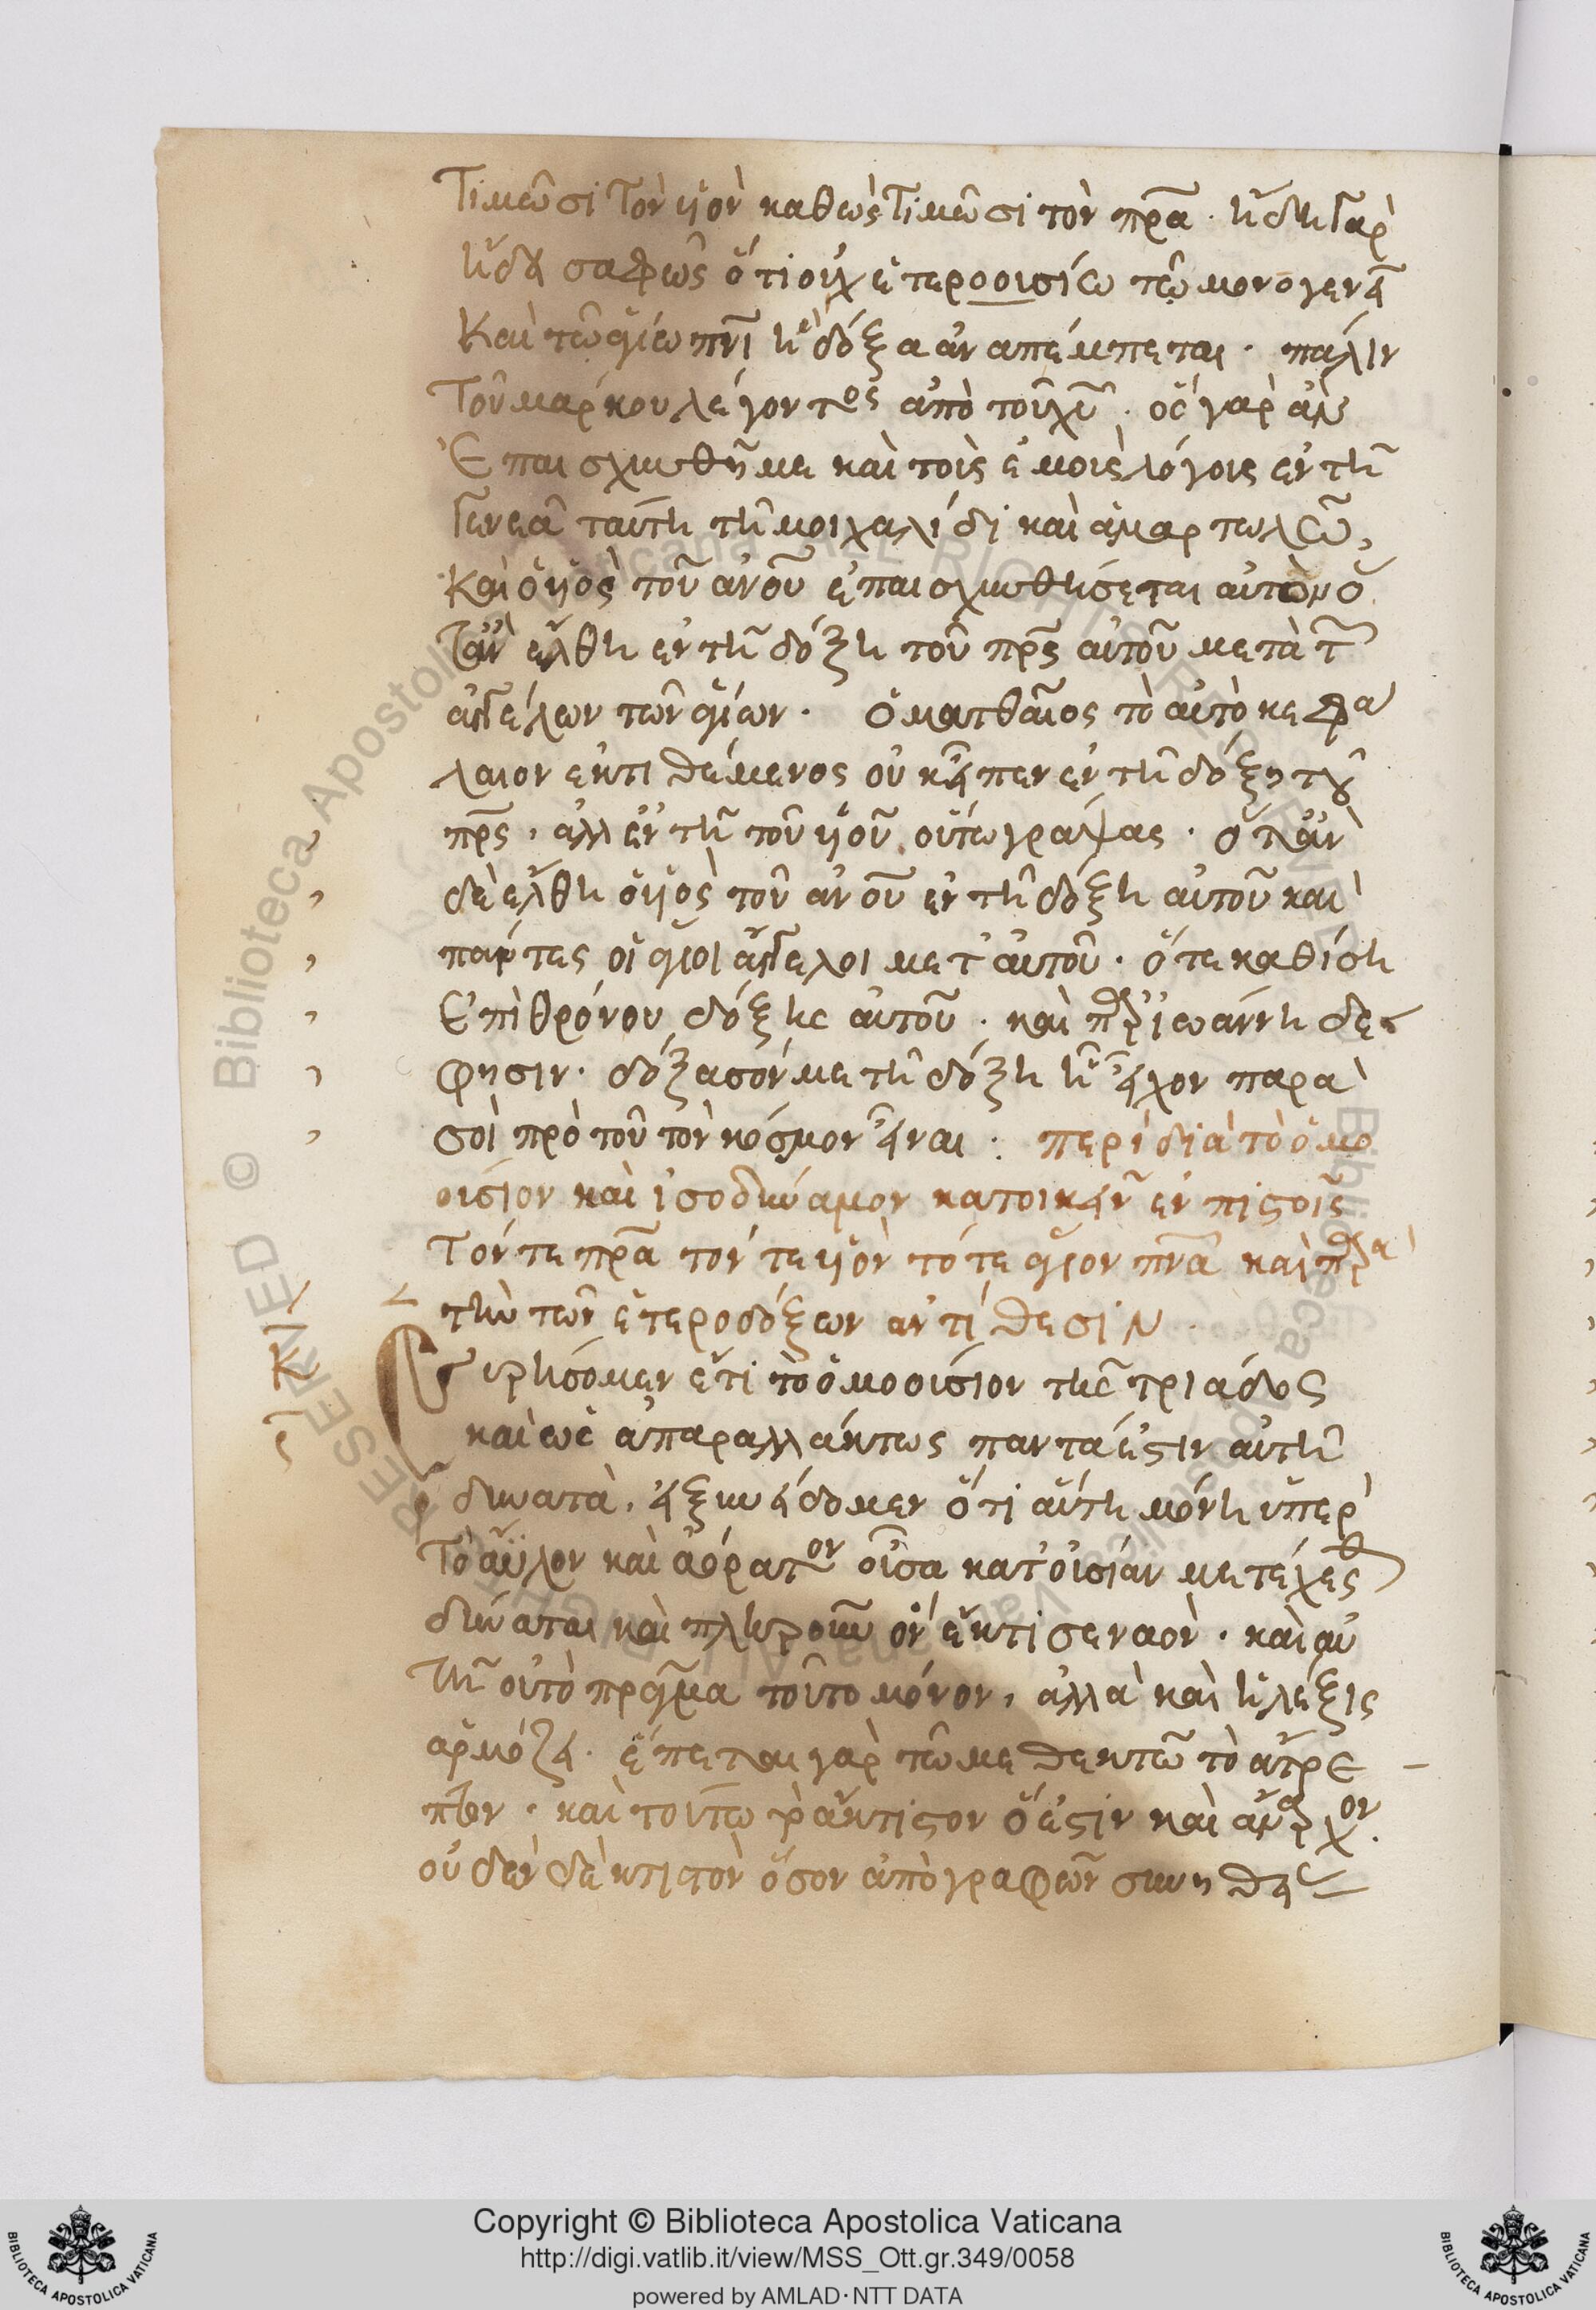 τιμῶσι τὸν υἱὸν καθὼς τιμῶσι τὸν πρα · ἤδη γὰρ
ἤδει σαφῶς ὅτι οὐχ ἑτεροουσίω τῶ μονογενεῖ
καὶ τῶ ἁγίω πνι ἡ δόξα ἀναπέμπεται · πάλιν
τοῦ μάρκου λέγοντος ἀπὸ τοῦ χυ · ὃς γὰρ ἂν
ἐπαισχυνθῆ με καὶ τοὺς ἐμοὺς λόγους ἐν τῆ
γενεᾶ ταύτη τῆ μοιχαλίδι καὶ ἁμαρτωλῶ,
καὶ ὁ υἱὸς τοῦ ανου ἐπαισχυνθήσεται αὐτὸν ὅ
ταν ἔλθη ἐν τῆ δόξη τοῦ πρς αὐτοῦ μετὰ τ
ἀγγέλων τῶν ἁγίων · ὁ ματθαῖος τὸ αὐτὸ κεφα
λαιον ἐκτιθέμενος οὐκ εἶπεν ἐν τῆ δόξη του
πρς, ἀλλ ἐν τῆ τοῦ υἱοῦ, οὕτω γράψας · ὅταν
δὲ ἔλθη ὁ υἱὸς τοῦ ανου ἐν τῆ δόξη αὐτοῦ καὶ
πάντες οἱ ἅγιοι ἄγγελοι μετ' αὐτοῦ · ὅτε καθίση
ἐπὶ θρόνου δόξης αὐτοῦ · καὶ πρ ἰωάννη δὲ
φησιν · δόξασόν με τῆ δόξη ἧ εἶχον παρὰ
σοὶ πρὸ τοῦ τὸν κόσμον εἶναι : περὶ διὰ τὸ ὁμο
ούσιον καὶ ἰσοδύναμον κατοικεῖν ἐν πιστοῖς
τόν τε πρα τόν τε υἱὸν τό τε ἅγιον πνα καὶ πρ
τὴν τῶν ἑτεροδόξων ἀντίθεσιν
Εὑρήσομεν ἔτι τὸ ὁμοούσιον τῆς τριάδος
καὶ ὡς ἀπαραλλάκτως πάντα ἐστιν αὐτῆ
δυνατὰ, ἐξ ὧν εἴδομεν ὅτι αὕτη μόνη ὑπὲρ
τὸ ἄϋλον καὶ ἀόρατον οὖσα κατ' οὐσίαν μετέχεσθ
δύναται καὶ πληροῦν ὃν ἔκτισε ναὸν · καὶ αὐ
τῆ οὐ τὸ πρᾶγμα τοῦτο μόνον, ἀλλὰ καὶ ἡ λέξις
ἁρμόζει · ἕπεται γὰρ τῶ μεθεκτῶ τὸ ἄτρε
πτον · καὶ τούτω τὸ ἄκτιστον ὅ ἐστιν καὶ ἄναρχον.
οὐδὲν δὲ κτιστὸν ὅσον ἀπὸ γραφῶν συνηθει
Copyright © Biblioteca Apostolica Vaticana
http://digi.vatlib.it/view/MSS_Ott.gr.349/0058
powered by AMLAD·NTT DATA
BIBLIOTECA APOSTOLICA VATICANA
BIBLIOTECA APOSTOLICA VATICANA